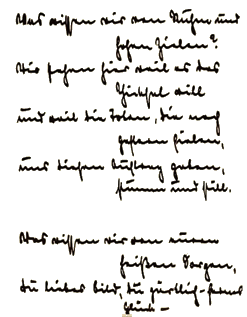 Was wissen wir von Ruhm und
hohen Zielen?
Wir stehen hier weil es das
Schicksal will
und weil die Toten, die nach
Hause fielen,
uns diesen Auftrag gaben,
stumm und still.
Was wissen wir von euren
heißen Sorgen,
Du liebes Bild, Du zärtlich-
Glück –